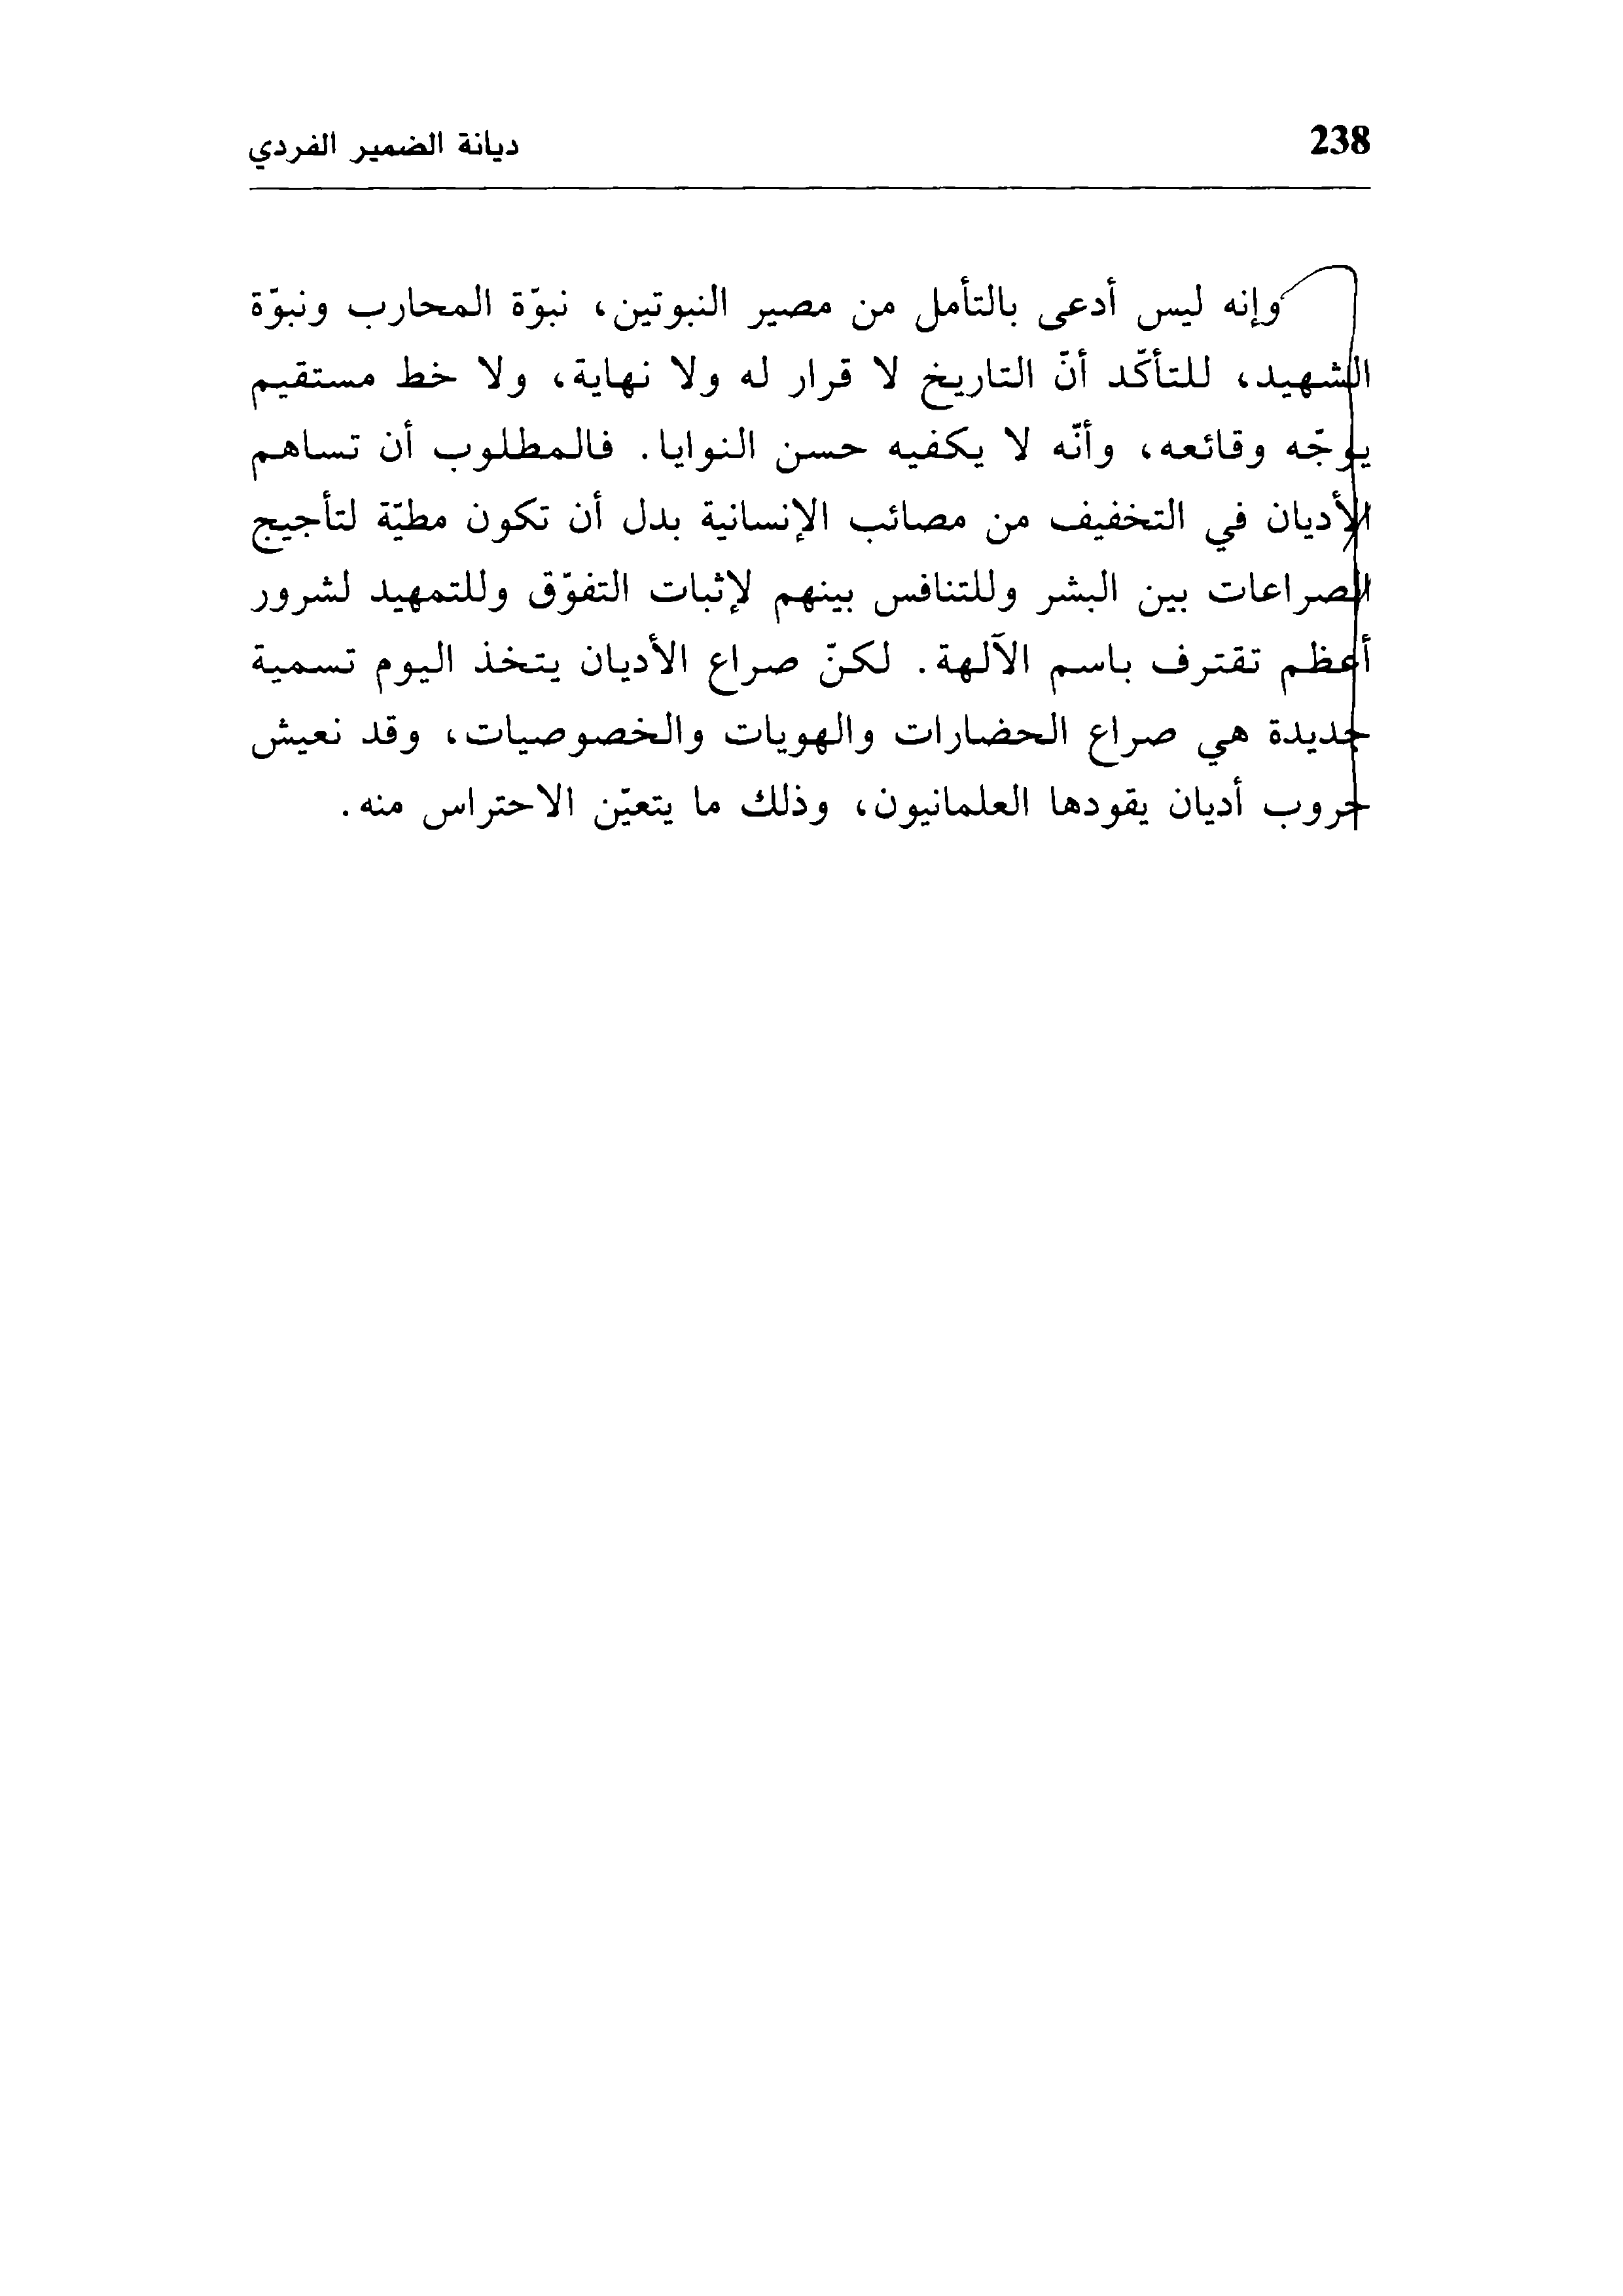 238
ديانة الضمير الفردي
وإنه ليس أدعى بالتأمل من مصير النبوتين، نبوّة المحارب ونبوّة
الشهيد، للتأكّد أنّ التاريخ لا قرار له ولا نهاية، ولا خط مستقيم
يوجّه وقائعه، وأنّه لا يكفيه حسن النوايا. فالمطلوب أن تساهم
الأديان في التخفيف من مصائب الإنسانية بدل أن تكون مطيّة لتأجيج
الصراعات بين البشر وللتنافس بينهم لإثبات التفوّق وللتمهيد لشرور
أعظم تقترف باسم الآلهة. لكنّ صراع الأديان يتخذ اليوم تسمية
جديدة هي صراع الحضارات والهويات والخصوصيات، وقد نعيش
حروب أديان يقودها العلمانيون، وذلك ما يتعيّن الاحتراس منه.